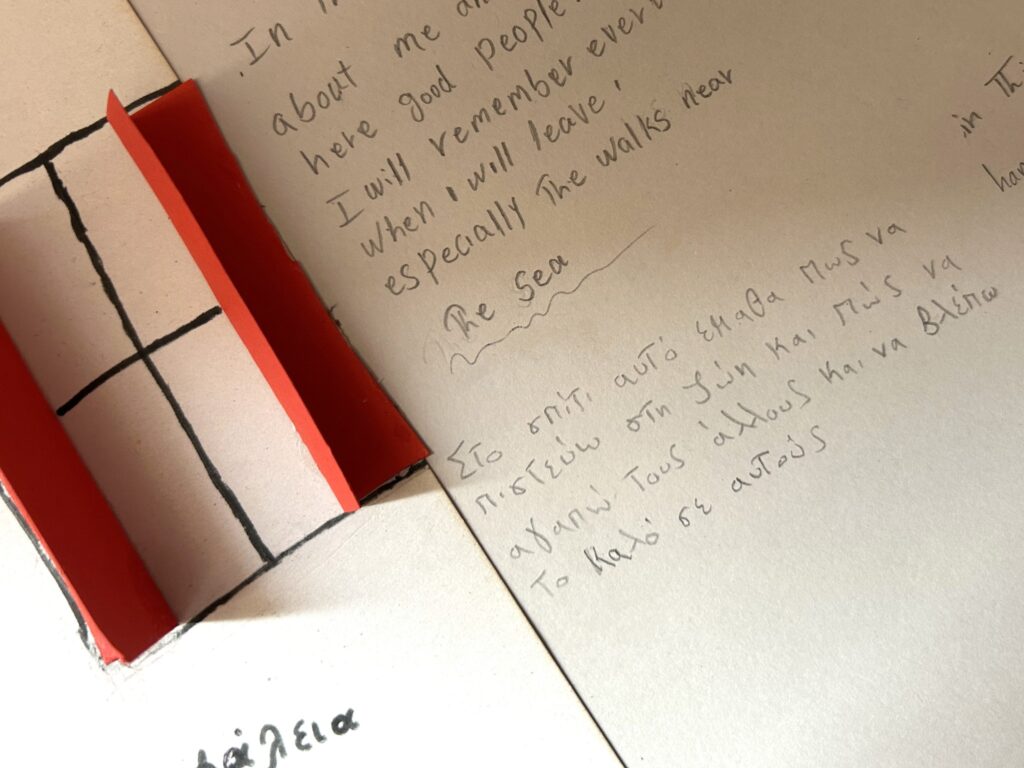 . In
about me
here good people
I will remember
when I will leave,
especially The walks near
The sea
in Thi
har
Στο σπίτι αυτό έμαθα πως να
πιστεύω στη ζωή και πώς να
αγαπώ τους άλλους και να βλέπω
το καλό σε αυτούς
άλεια